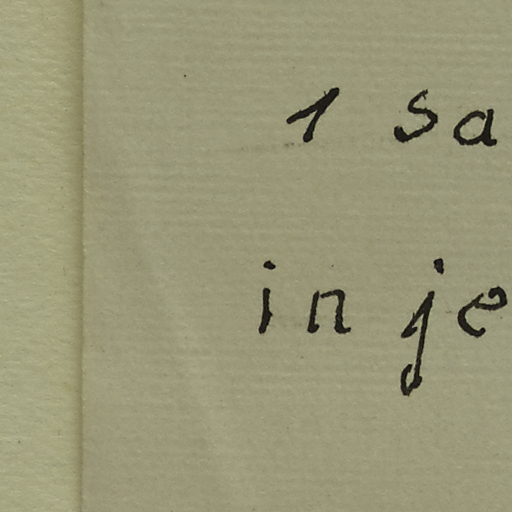 1 sa
in je